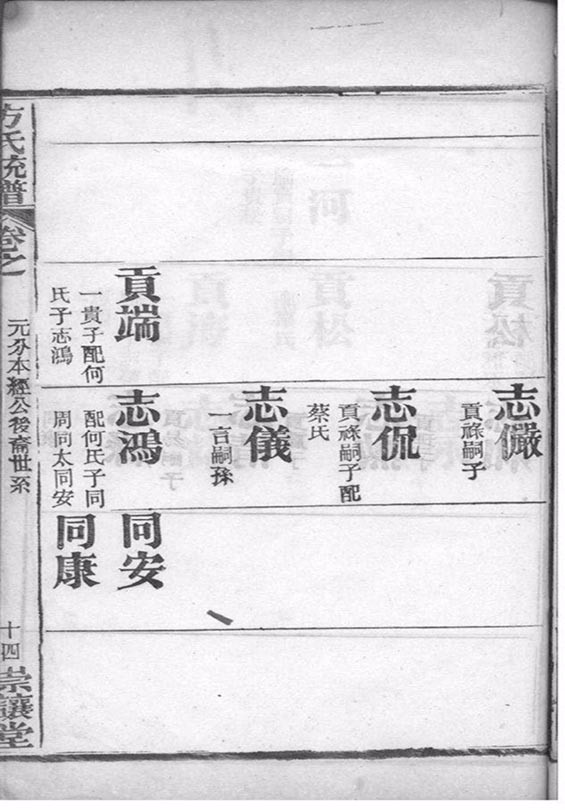 志儼
貢祿嗣子
志侃
貢祿嗣子配
蔡氏
志儀
一言嗣孫
貢端
一貴子配何
氏子志鴻
志鴻
配何氏子同
周同太同安
同安
同康
方氏統譜
卷之
元分本經公後裔世系
十四
崇讓堂